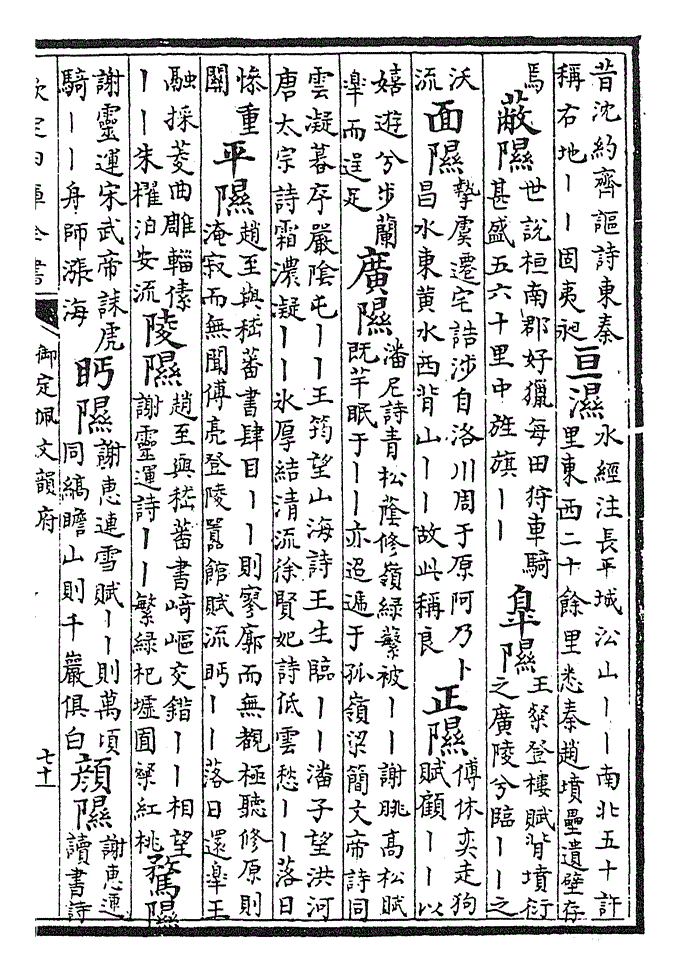 昔沈約齊謳詩東秦
稱右地丨丨固夷昶
亘濕
水經注長平城沁山丨丨南北五十許
里東西二十餘里悉秦趙墳壘遺壁存
焉
蔽隰
世說桓南郡好獵每田狩車騎
甚盛五六十里中旌旗丨丨
臯隰
王粲登樓賦背墳衍
之廣陵兮臨丨丨之
沃
流
面隰
摯虞遷宅誥涉自洛川周于原阿乃卜
昌水東黄水西背山丨丨故此稱良
正隰
傅休奕走狗
賦顧丨丨以
嬉遊兮步蘭
臯而逞足
廣隰
潘尼詩青松蔭修嶺緑蘩被丨丨謝朓高松賦
既芊眠于丨丨亦迢遞于孤嶺梁簡文帝詩同
雲凝暮序嚴陰屯丨丨王筠望山海詩王生臨丨丨潘子望洪河
唐太宗詩霜濃凝丨丨氷厚結清流徐賢妃詩低雲愁丨丨落日
慘重
關
平隰
趙至與嵇蕃書肆目丨丨則寥廓而無覩極聽修原則
淹寂而無聞傅亮登陵囂館賦流眄丨丨落日還臯王
融採菱曲雕輜傃
丨丨朱櫂泊安流
陵隰
趙至與嵇蕃書崎嶇交錯丨丨相望
謝靈運詩丨丨繁緑杞墟囿粲紅桃
騖隰
謝靈運宋武帝誄虎
騎丨丨舟師漲海
眄隰
謝惠連雪賦丨丨則萬頃
同縞瞻山則千巖俱白
頳隰
謝惠連
讀書詩
欽定四庫全書
御定佩文韻府
七十一